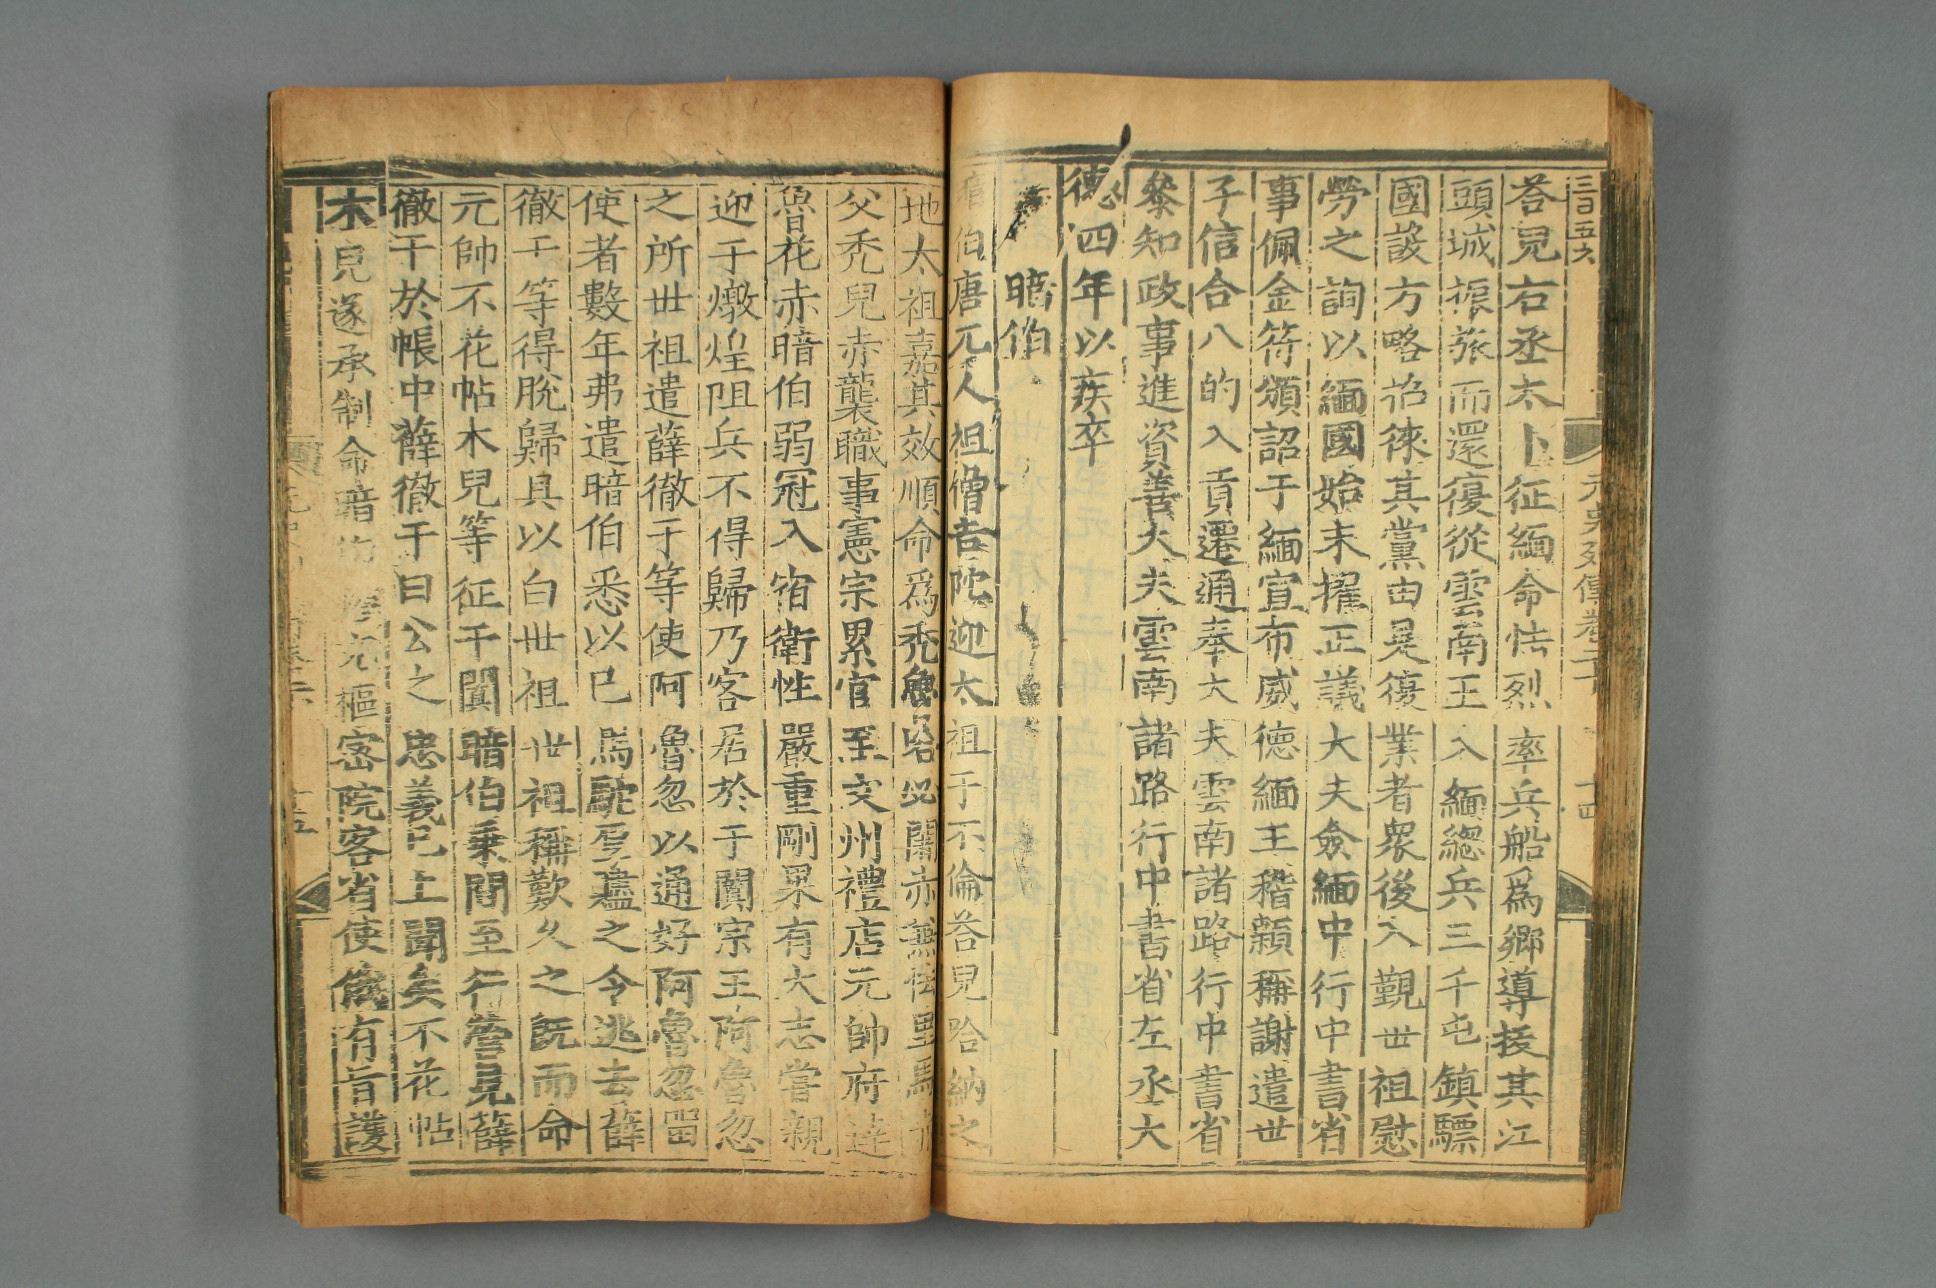 元史列傳卷二十 十四
荅兒右丞太卜征緬命怯烈率兵船爲鄉導拔其江
頭城振旅而還復從雲南王入緬緫兵三千屯鎮驃
國設方略招徠其黨由是復業者衆後入覲世祖慰
勞之詢以緬國始末擢正議大夫僉緬中行中書省
事佩金符頒詔于緬宣布威德緬王稽顙稱謝遣世
子信合八的入貢遷通奉大夫雲南諸路行中書省
叅知政事進資善大夫雲南諸路行中書省左丞大
德四年以疾卒
暗伯
暗伯唐元人祖僧吉陀迎太祖于不倫荅兒哈納之
地太祖嘉其效順命爲禿魯哈必闍赤兼怯里馬赤
父禿兒赤襲職事憲宗累官至文州禮店元帥府達
魯花赤暗伯弱冠入宿衛性嚴重剛果有大志嘗親
迎于燉煌阻兵不得歸乃客居於于闐宗王阿魯忽
之所世祖遣薛徹干等使阿魯忽以通好阿魯忽留
使者數年弗遣暗伯悉以已馬駝厚贐之令逃去薛
徹干等得脫歸具以白世祖世祖稱歎久之既而命
元帥不花帖木兒等征于闐暗伯乗間至行營見薛
徹干於帳中薛徹干曰公之忠義已上聞矣不花帖
木兒遂承制命暗伯權充樞密院客省使俄有旨護